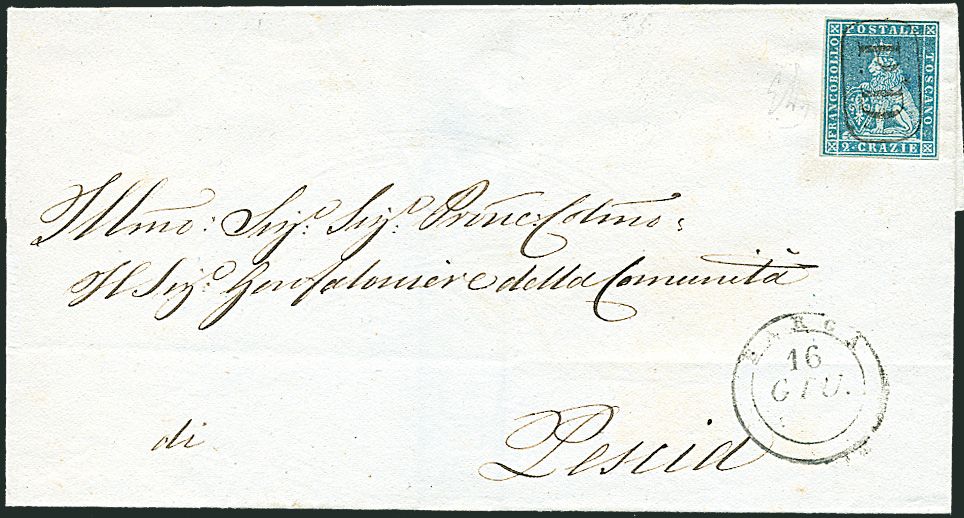 FRANCOBOLLO POSTALE TOSCANO
2 CRAZIE
PD
Illmo: Sigre. Sigre. Prone Colmo:
Il Sigr. Gonfaloniere della Comunità
di Pescia
BARGA
16
GIU.